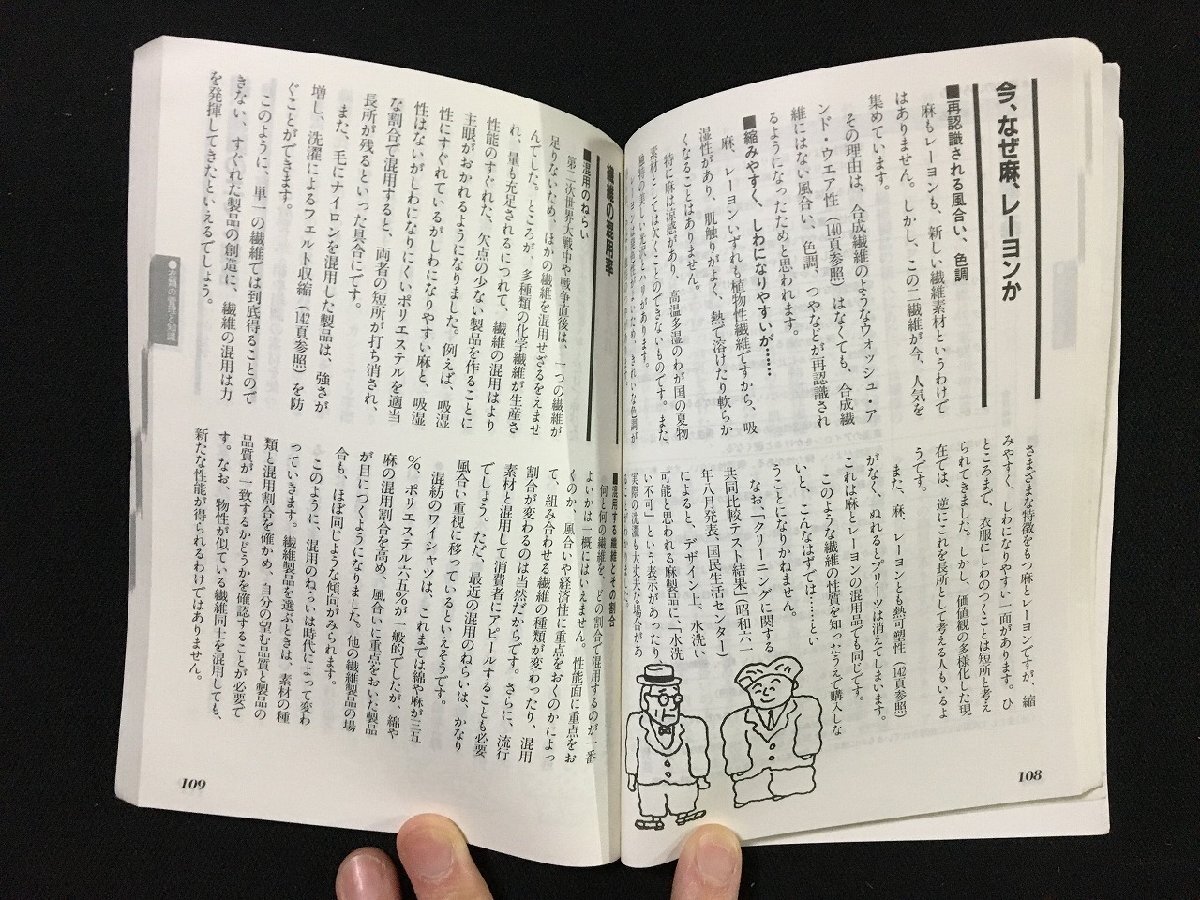 今、なぜ麻、レーヨンか
■再認識される風合い、色調
麻もレーヨンも、新しい繊維素材というわけで
はありません。しかし、この二繊維が今、人気を
集めています。
その理由は、合成繊維のようなウォッシュ・ア
ンド・ウエア性(140頁参照)はなくても、合成繊
維にはない風合い、色調、つやなどが再認識され
るようになったためと思われます。
■縮みやすく、しわになりやすいが……
麻、レーヨンいずれも植物性繊維ですから、吸
湿性があり、肌触りがよく、熱で溶けたり軟らか
くなることはありません。
特に麻は涼感があり、高温多湿のわが国の夏物
素材としては欠くことのできないものです。また、
独特の美しい光沢とハリがあります。
さまざまな特徴をもつ麻とレーヨンですが、縮
みやすく、しわになりやすい一面があります。ひ
ところまで、衣服にしわのつくことは短所と考え
られてきました。しかし、価値観の多様化した現
在では、逆にこれを長所として考える人もいるよ
うです。
また、麻、レーヨンとも熱可塑性(142頁参照)
がなく、ぬれるとプリーツは消えてしまいます。
これは麻とレーヨンの混用品でも同じです。
このような繊維の性質を知ったうえで購入しな
いと、こんなはずでは……とい
うことになりかねません。
なお、「クリーニングに関する
共同比較テスト結果」(昭和六一
年八月発表、国民生活センター)
によると、デザイン上、水洗い
可能と思われる麻製品に、「水洗
い不可」という表示があったり、
実際の洗濯も大丈夫な場合があ
108
繊維の混用率
■混用のねらい
第二次世界大戦中や戦争直後は、一つの繊維が
足りないため、ほかの繊維を混用せざるをえませ
んでした。ところが、多種類の化学繊維が生産さ
れ、量も充足されるにつれて、繊維の混用はより
性能のすぐれた、欠点の少ない製品を作ることに
主眼がおかれるようになりました。例えば、吸湿
性にすぐれているがしわになりやすい麻と、吸湿
性はないがしわになりにくいポリエステルを適当
な割合で混用すると、両者の短所が打ち消され、
長所が残るといった具合にです。
また、毛にナイロンを混用した製品は、強さが
増し、洗濯によるフェルト収縮(142頁参照)を防
ぐことができます。
このように、単一の繊維では到底得ることので
きない、すぐれた製品の創造に、繊維の混用は力
を発揮してきたといえるでしょう。
■混用する繊維とその割合
何と何の繊維を、どの割合で混用するのが一番
よいかは一概にはいえません。性能面に重点をお
くのか、風合いや経済性に重点をおくのかによっ
て、組み合わせる繊維の種類が変わったり、混用
割合が変わるのは当然だからです。さらに、流行
素材と混用して消費者にアピールすることも必要
でしょう。ただ、最近の混用のねらいは、かなり
風合い重視に移っているといえそうです。
混紡のワイシャツは、これまでは綿や麻が三五
%、ポリエステル六五%が一般的でしたが、綿や
麻の混用割合を高め、風合いに重点をおいた製品
が目につくようになりました。他の繊維製品の場
合も、ほぼ同じような傾向がみられます。
このように、混用のねらいは時代によって変わ
っていきます。繊維製品を選ぶときは、素材の種
類と混用割合を確かめ、自分の望む品質と製品の
品質が一致するかどうかを確認することが必要で
す。なお、物性が似ている繊維同士を混用しても、
新たな性能が得られるわけではありません。
●衣類の管理と知識
109